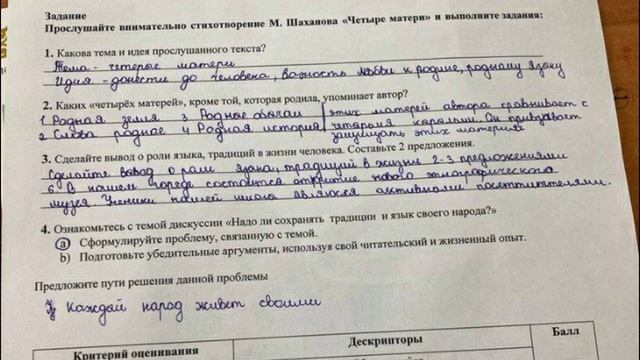 Задание
Прослушайте внимательно стихотворение М. Шаханова «Четыре матери» и выполните задания:
1. Какова тема и идея прослушанного текста?
Тема - четыре матери
Идия - донести до человека, важность любви к родине, родному языку
2. Каких «четырёх матерей», кроме той, которая родила, упоминает автор?
1 Родная земля 3 Родное обычаи этих матерей автора сравнивает с
2 Слова родное 4 Родная история четырмя Он призывает
защищать этих материй
3. Сделайте вывод о роли языка, традиций в жизни человека. Составьте 2 предложения.
Сделойте вывод о роли языка, традиций в жизни 2-3 предложениями
В нашем городе состоится открытие нового этнографического
музея Ученики нашей школ являлся активными посетителями.
4. Ознакомьтесь с темой дискуссии «Надо ли сохранять традиции и язык своего народа?»
a) Сформулируйте проблему, связанную с темой.
b) Подготовьте убедительные аргументы, используя свой читательский и жизненный опыт.
Предложите пути решения данной проблемы
Каждай народ живет своими
Критерий оценивания
Дескрипторы
Балл